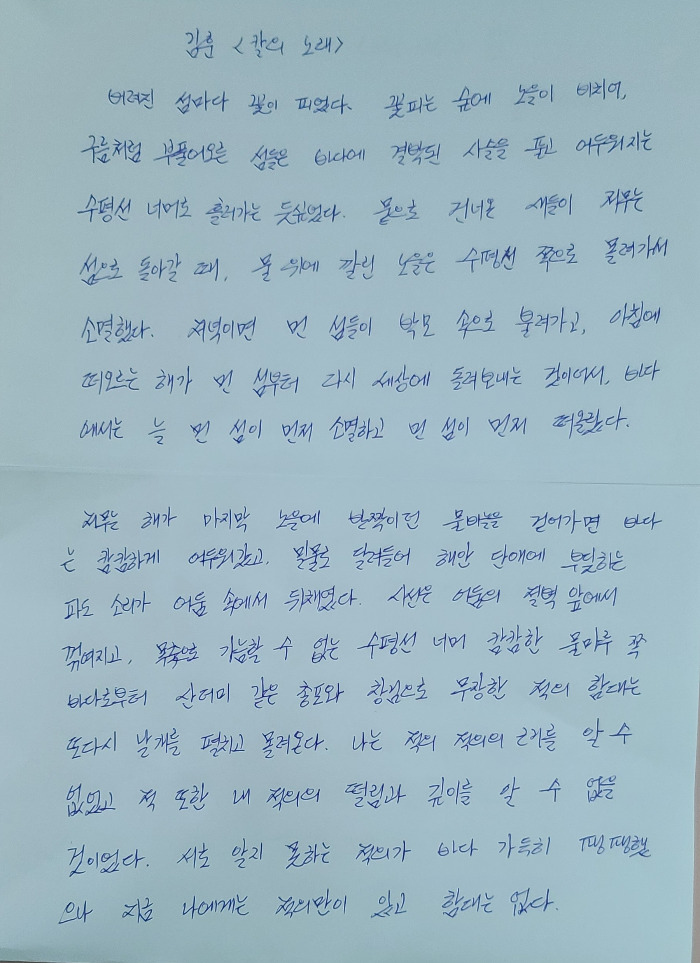 김훈 <칼의 노래>
버려진 섬마다 꽃이 피었다. 꽃피는 숲에 노을이 비치어,
구름처럼 부풀어오른 섬들은 바다에 결박된 사슬을 풀고 어두워지는
수평선 너머로 흘러가는 듯싶었다. 뭍으로 건너온 새들이 저무는
섬으로 돌아갈 때, 물 위에 깔린 노을은 수평선 쪽으로 몰려가서
소멸했다. 저녁이면 먼 섬들이 박모 속으로 불려가고, 아침에
떠오르는 해가 먼 섬부터 다시 세상에 돌려보내는 것이어서, 바다
에서는 늘 먼 섬이 먼저 소멸하고 먼 섬이 먼저 떠올랐다.
저무는 해가 마지막 노을에 반짝이던 물비늘을 걷어가면 바다
는 캄캄하게 어두워갔고, 밀물로 달려들어 해안 단애에 부딪히는
파도 소리가 어둠 속에서 뒤채었다. 시선은 어둠의 절벽 앞에서
꺾여지고, 목측으로 가늠할 수 없는 수평선 너머 캄캄한 물마루 쪽
바다로부터 산더미 같은 총포와 창검으로 무장한 적의 함대는
또다시 날개를 펼치고 몰려온다. 나는 적의 적의의 근거를 알 수
없었고 적 또한 내 적의의 떨림과 깊이를 알 수 없을
것이었다. 서로 알지 못하는 적의가 바다 가득히 팽팽했
으나 지금 나에게는 적의만이 있고 함대는 없다.